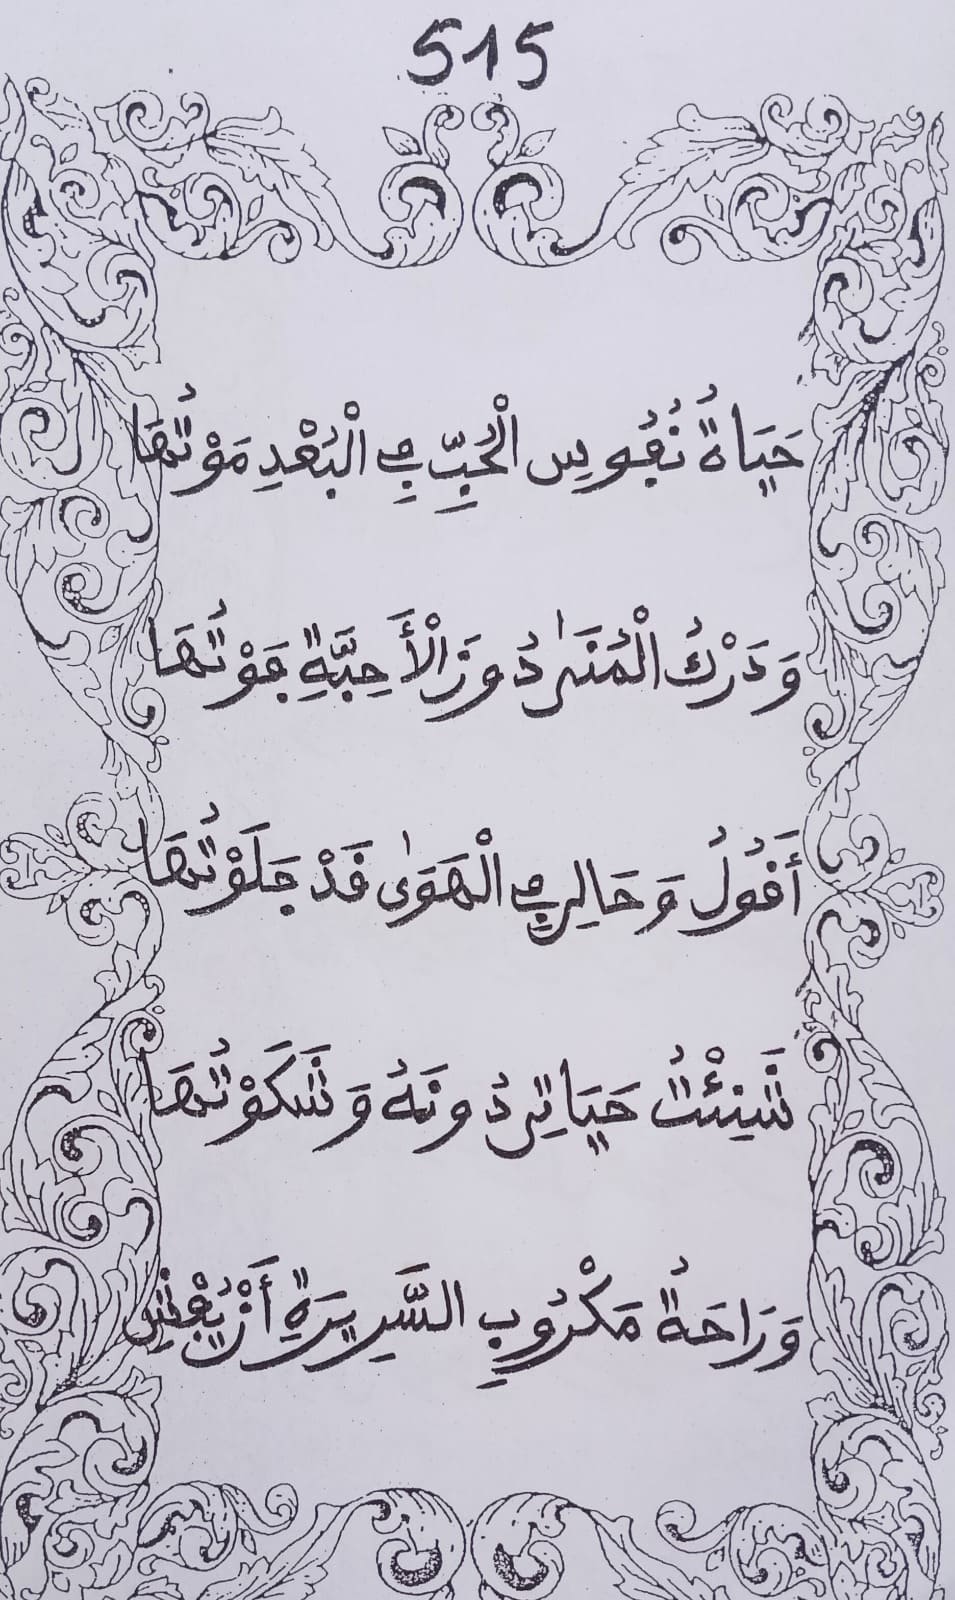 515
حَيَاةُ نُفُوسِ الْحُبِّ فِي الْبُعْدِ مَوْتُهَا
وَدَرْكُ الْمُنَىٰ دُونَ الْأَحِبَّةِ فَوْتُهَا
أَقُولُ وَحَالِي فِي الْهَوَىٰ قَدْ جَلَوْتُهَا
شَنِئْتُ حَيَاتِي دُونَهُ وَشَكَوْتُهَا
وَرَاحَةُ مَكْرُوبِ السَّرِيرَةِ أَنْ يُفْشِي